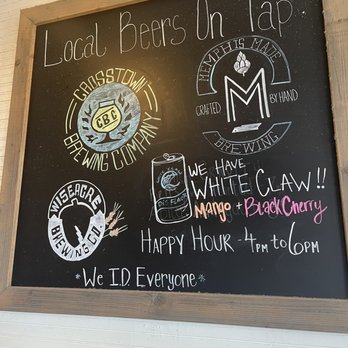 Local Beers On Tap
CROSSTOWN
CBC
BREWING COMPANY
MEMPHIS MADE
CRAFTED
M
BY HAND
BREWING
WISEACRE
BREWING CO.
WE HAVE
WHITE CLAW!!
Mango + Black Cherry
HAPPY HOUR - 4PM to 6PM
*We I.D. Everyone*